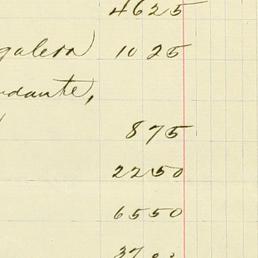 4625
galera) 1025
udante,
875
2250
6550